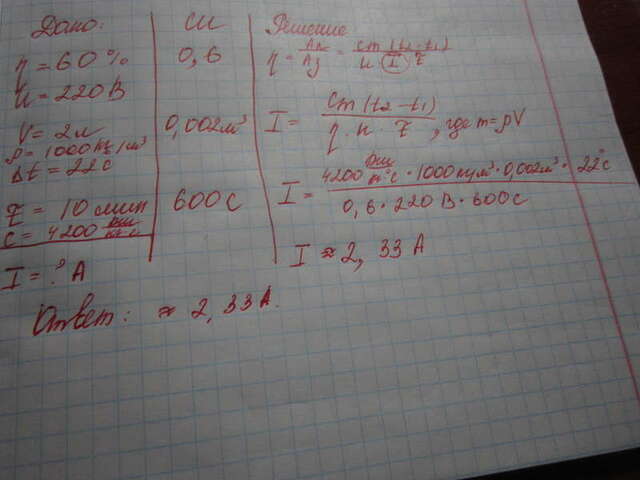 Дано:
η = 60%
U = 220 В
V = 2 л
ρ = 1000 кг/м³
Δt = 22°C
τ = 10 мин
c = 4200 Дж/кг°С
I = ? А
СИ
0,6
0,002 м³
600 С
Решение
η = Ап/Аз = cm(t₂-t₁)/U I τ
I = cm(t₂-t₁)/η·U·τ, где m=ρV
I = 4200 Дж/кг°С · 1000 кг/м³ · 0,002 м³ · 22°С / 0,6 · 220 В · 600 С
I ≈ 2,33 А
Ответ: ≈ 2,33 А.